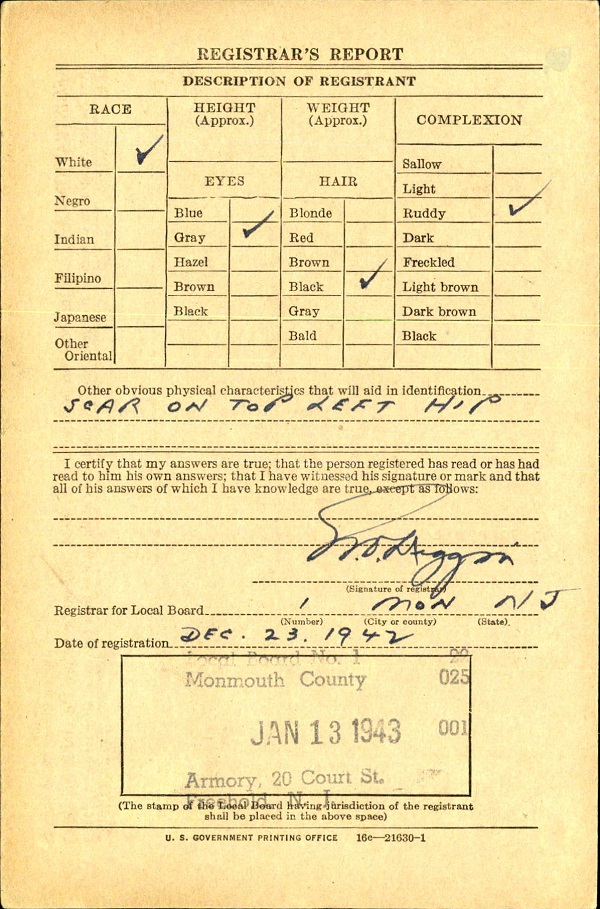 REGISTRAR'S REPORT
DESCRIPTION OF REGISTRANT
RACE
HEIGHT
(Approx.)
WEIGHT
(Approx.)
COMPLEXION
White ✓
Negro
Indian
Filipino
Japanese
Other
Oriental
EYES
Blue
Gray ✓
Hazel
Brown
Black
HAIR
Blonde
Red
Brown
Black ✓
Gray
Bald
Sallow
Light
Ruddy ✓
Dark
Freckled
Light brown
Dark brown
Black
Other obvious physical characteristics that will aid in identification
SCAR ON TOP LEFT HIP
I certify that my answers are true; that the person registered has read or has had
read to him his own answers; that I have witnessed his signature or mark and that
all of his answers of which I have knowledge are true, except as follows:
(Signature of registrar)
Registrar for Local Board 1 MON NJ
(Number) (City or county) (State)
Date of registration DEC. 23. 1942
Local Board No. 1
Monmouth County 025
JAN 13 1943 001
Armory, 20 Court St.
Freehold, N. J.
(The stamp of the Local Board having jurisdiction of the registrant
shall be placed in the above space)
U. S. GOVERNMENT PRINTING OFFICE 16c—21630-1